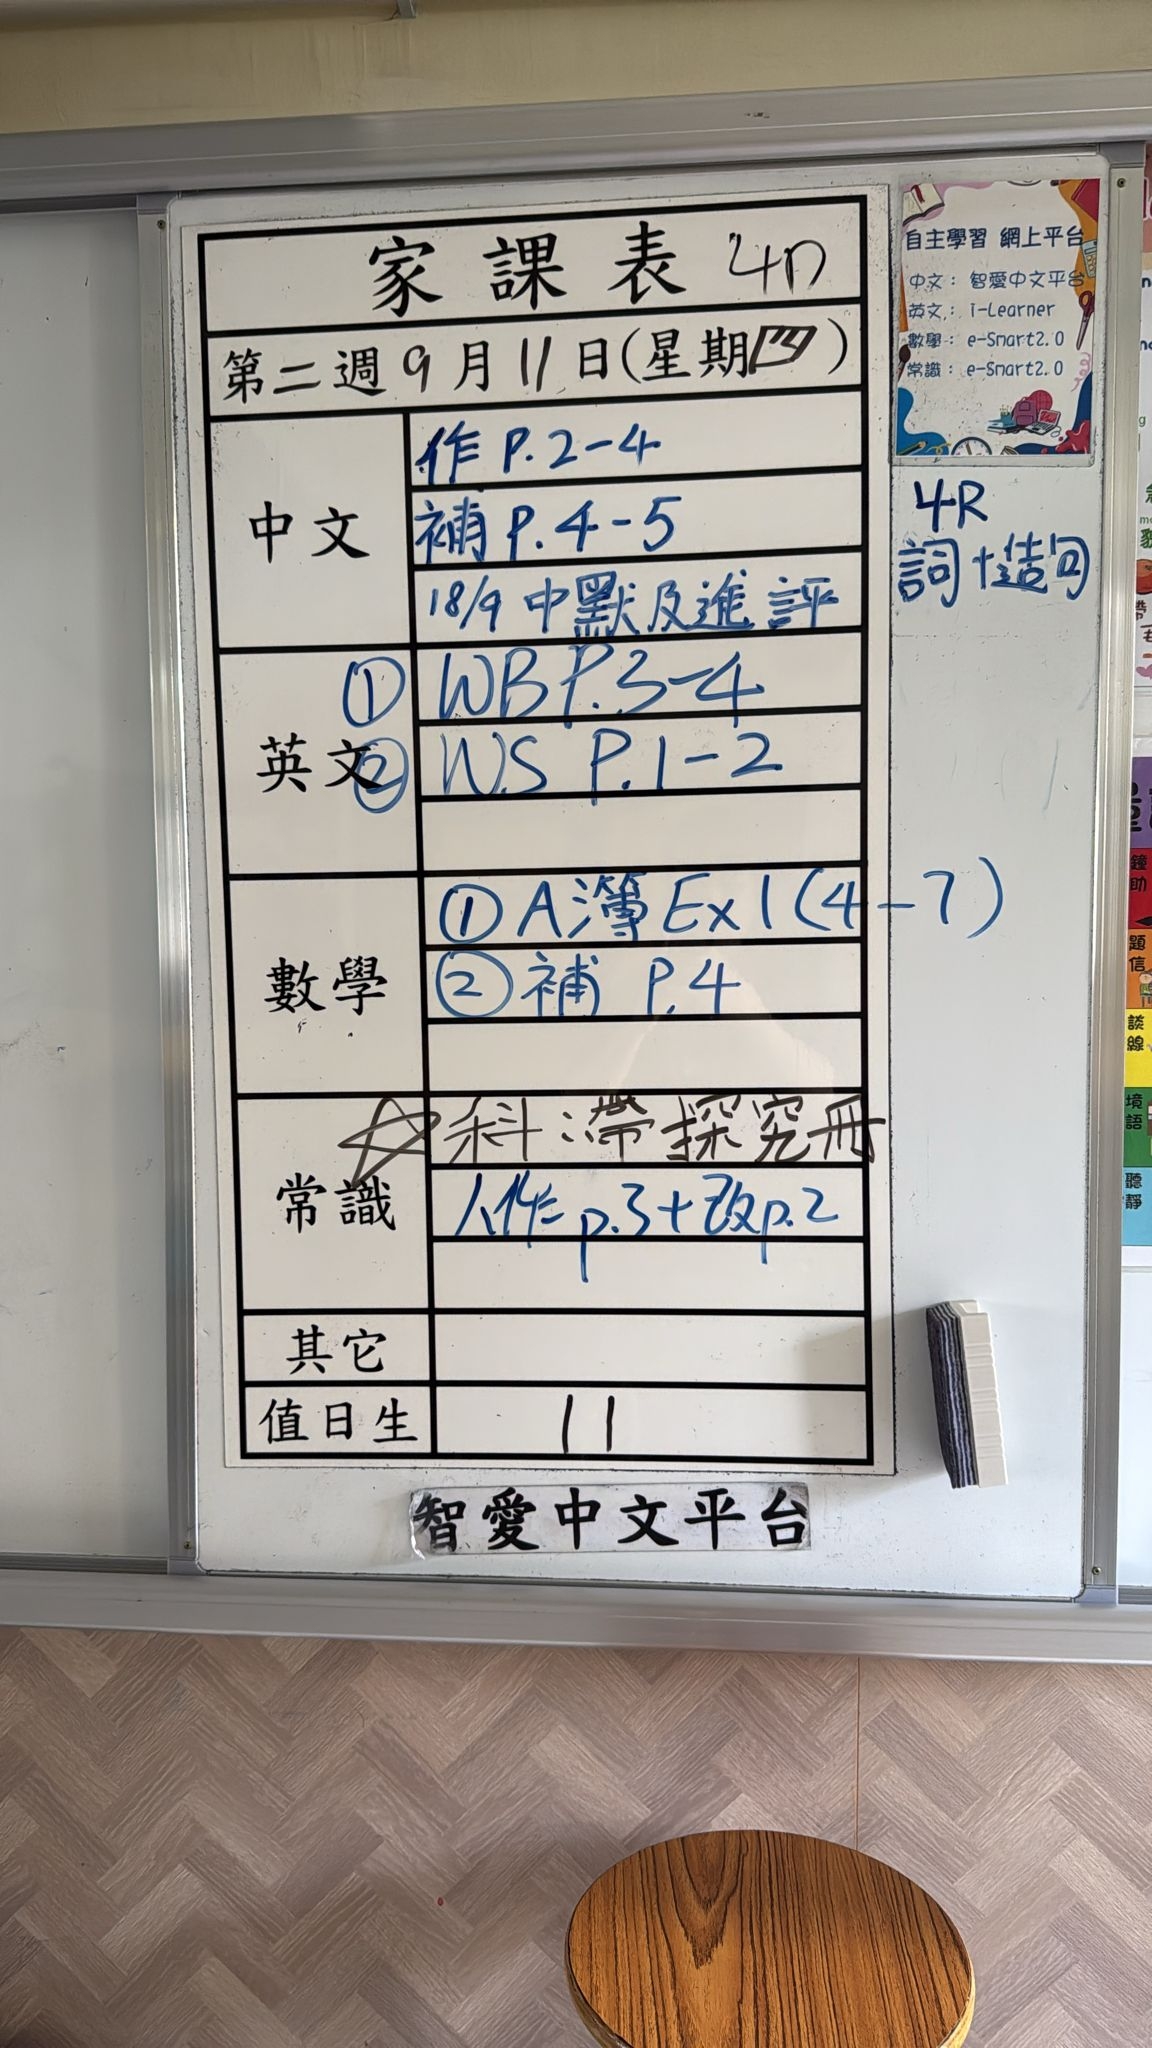 家課表 4D
第二週9月11日(星期四)
中文
作 P.2-4
補 P.4-5
18/9 中默及進評
英文
① WB P.3-4
② WS P.1-2
數學
① A簿 Ex1(4-7)
② 補 P.4
常識
☆ 科:帶探究冊
人作 p.3+改p.2
其它
值日生
11
智愛中文平台
自主學習 網上平台
中文: 智愛中文平台
英文: i-Learner
數學: e-Smart2.0
常識: e-Smart2.0
4R
詞+造句
鐘
助
題
信
談
線
境
語
聽
靜